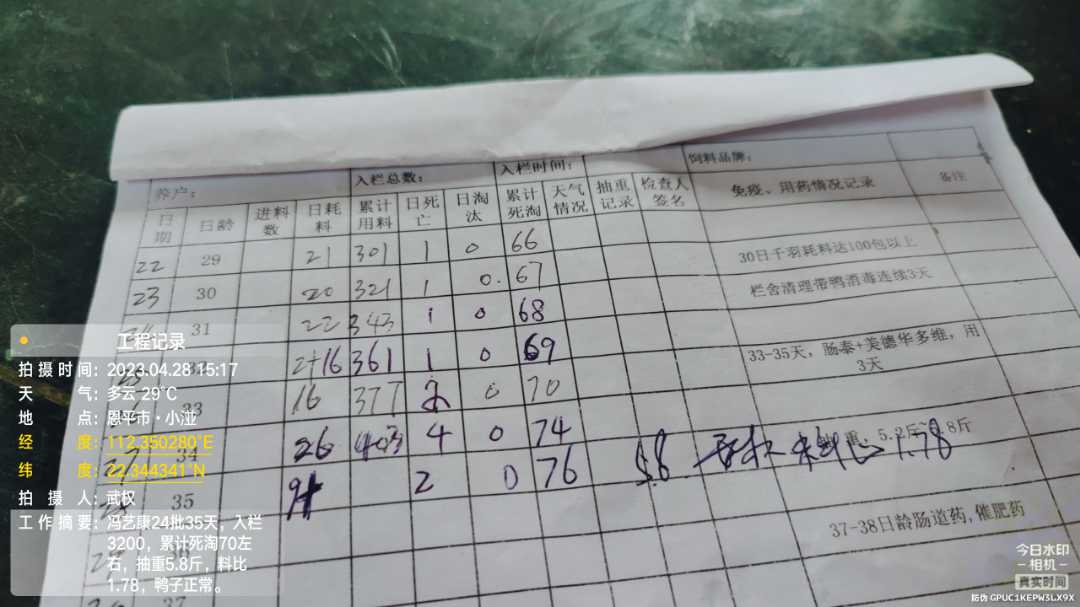 养户： 入栏总数： 入栏时间： 饲料品牌：
日期 日龄 进料数 日耗料 累计用料 日死亡 日淘汰 累计死淘 天气情况 抽重记录 检查人签名 免疫、用药情况记录 备注
22 29 21 301 1 0 66
30日千羽耗料达100包以上
23 30 20 321 1 0. 67
栏舍清理带鸭消毒连续3天
31 22 343 1 0 68
16 361 1 0 69
33-35天，肠泰+美德华多维，用3天
33 16 377 2 0 70
34 26 403 4 0 74
35 2 0 76 5.8 1.78
37-38日龄肠道药,催肥药
37
工程记录
拍摄时间：2023.04.28 15:17
天气：多云 29°C
地点：恩平市·小湴
经度：112.350280°E
纬度：22.344341°N
拍摄人：武权
工作摘要：冯艺康24批35天，入栏
3200，累计死淘70左
右，抽重5.8斤，料比
1.78，鸭子正常。
今日水印
相机
真实时间
防伪 GPUC1KEPW3LX9X